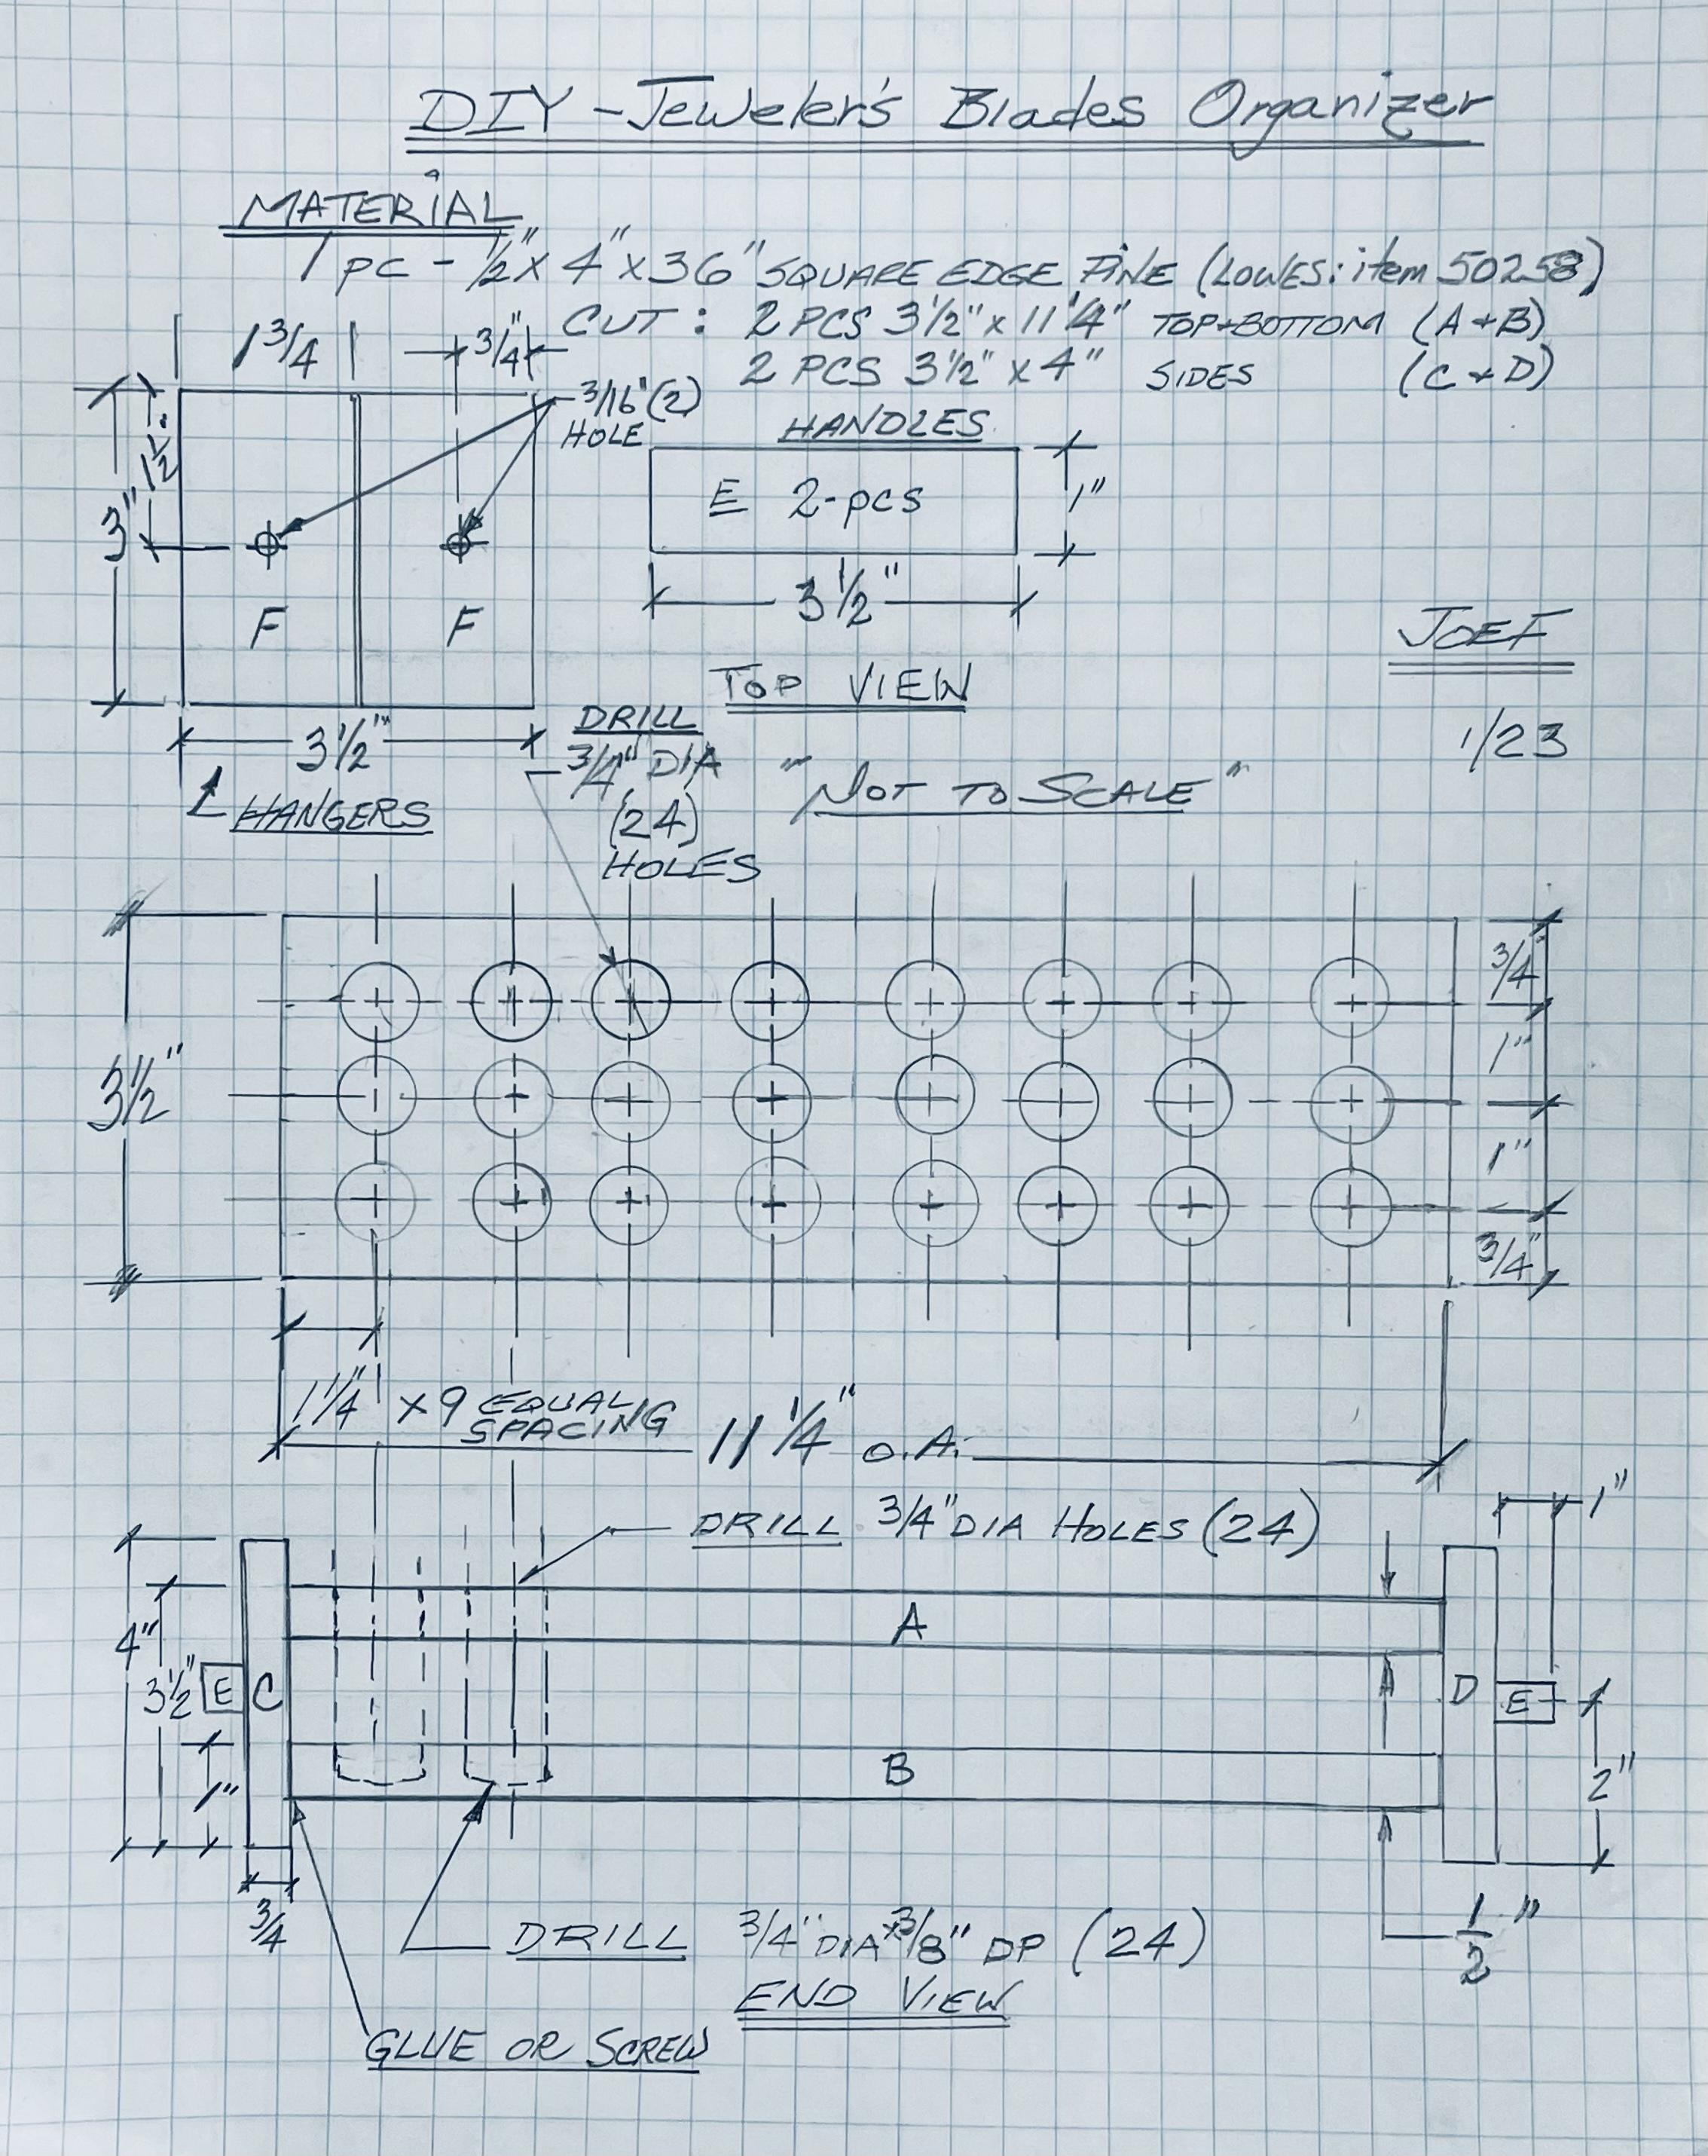 DIY - Jeweler's Blades Organizer
MATERIAL
1 pc - 1/2" x 4" x 36" SQUARE EDGE PINE (LOWES: item 50258)
CUT: 2 PCS 3 1/2" x 11 1/4" TOP+BOTTOM (A + B)
2 PCS 3 1/2" x 4" SIDES (C + D)
1 3/4
3/4"
3/16" (2)
HOLE
1 1/2"
3"
F F
3 1/2"
HANGERS
HANDLES
E 2-pcs
1"
3 1/2"
TOP VIEW
JOEF
1/23
DRILL
3/4" DIA
(24)
HOLES
"NOT TO SCALE"
3 1/2"
3/4"
1"
1"
3/4"
1 1/4" x 9 EQUAL
SPACING
11 1/4" O.A.
DRILL 3/4" DIA HOLES (24)
1"
4"
3 1/2"
1"
E C
A
B
D E
2"
3/4
1/2"
DRILL 3/4" DIA x 3/8" DP (24)
END VIEW
GLUE OR SCREW